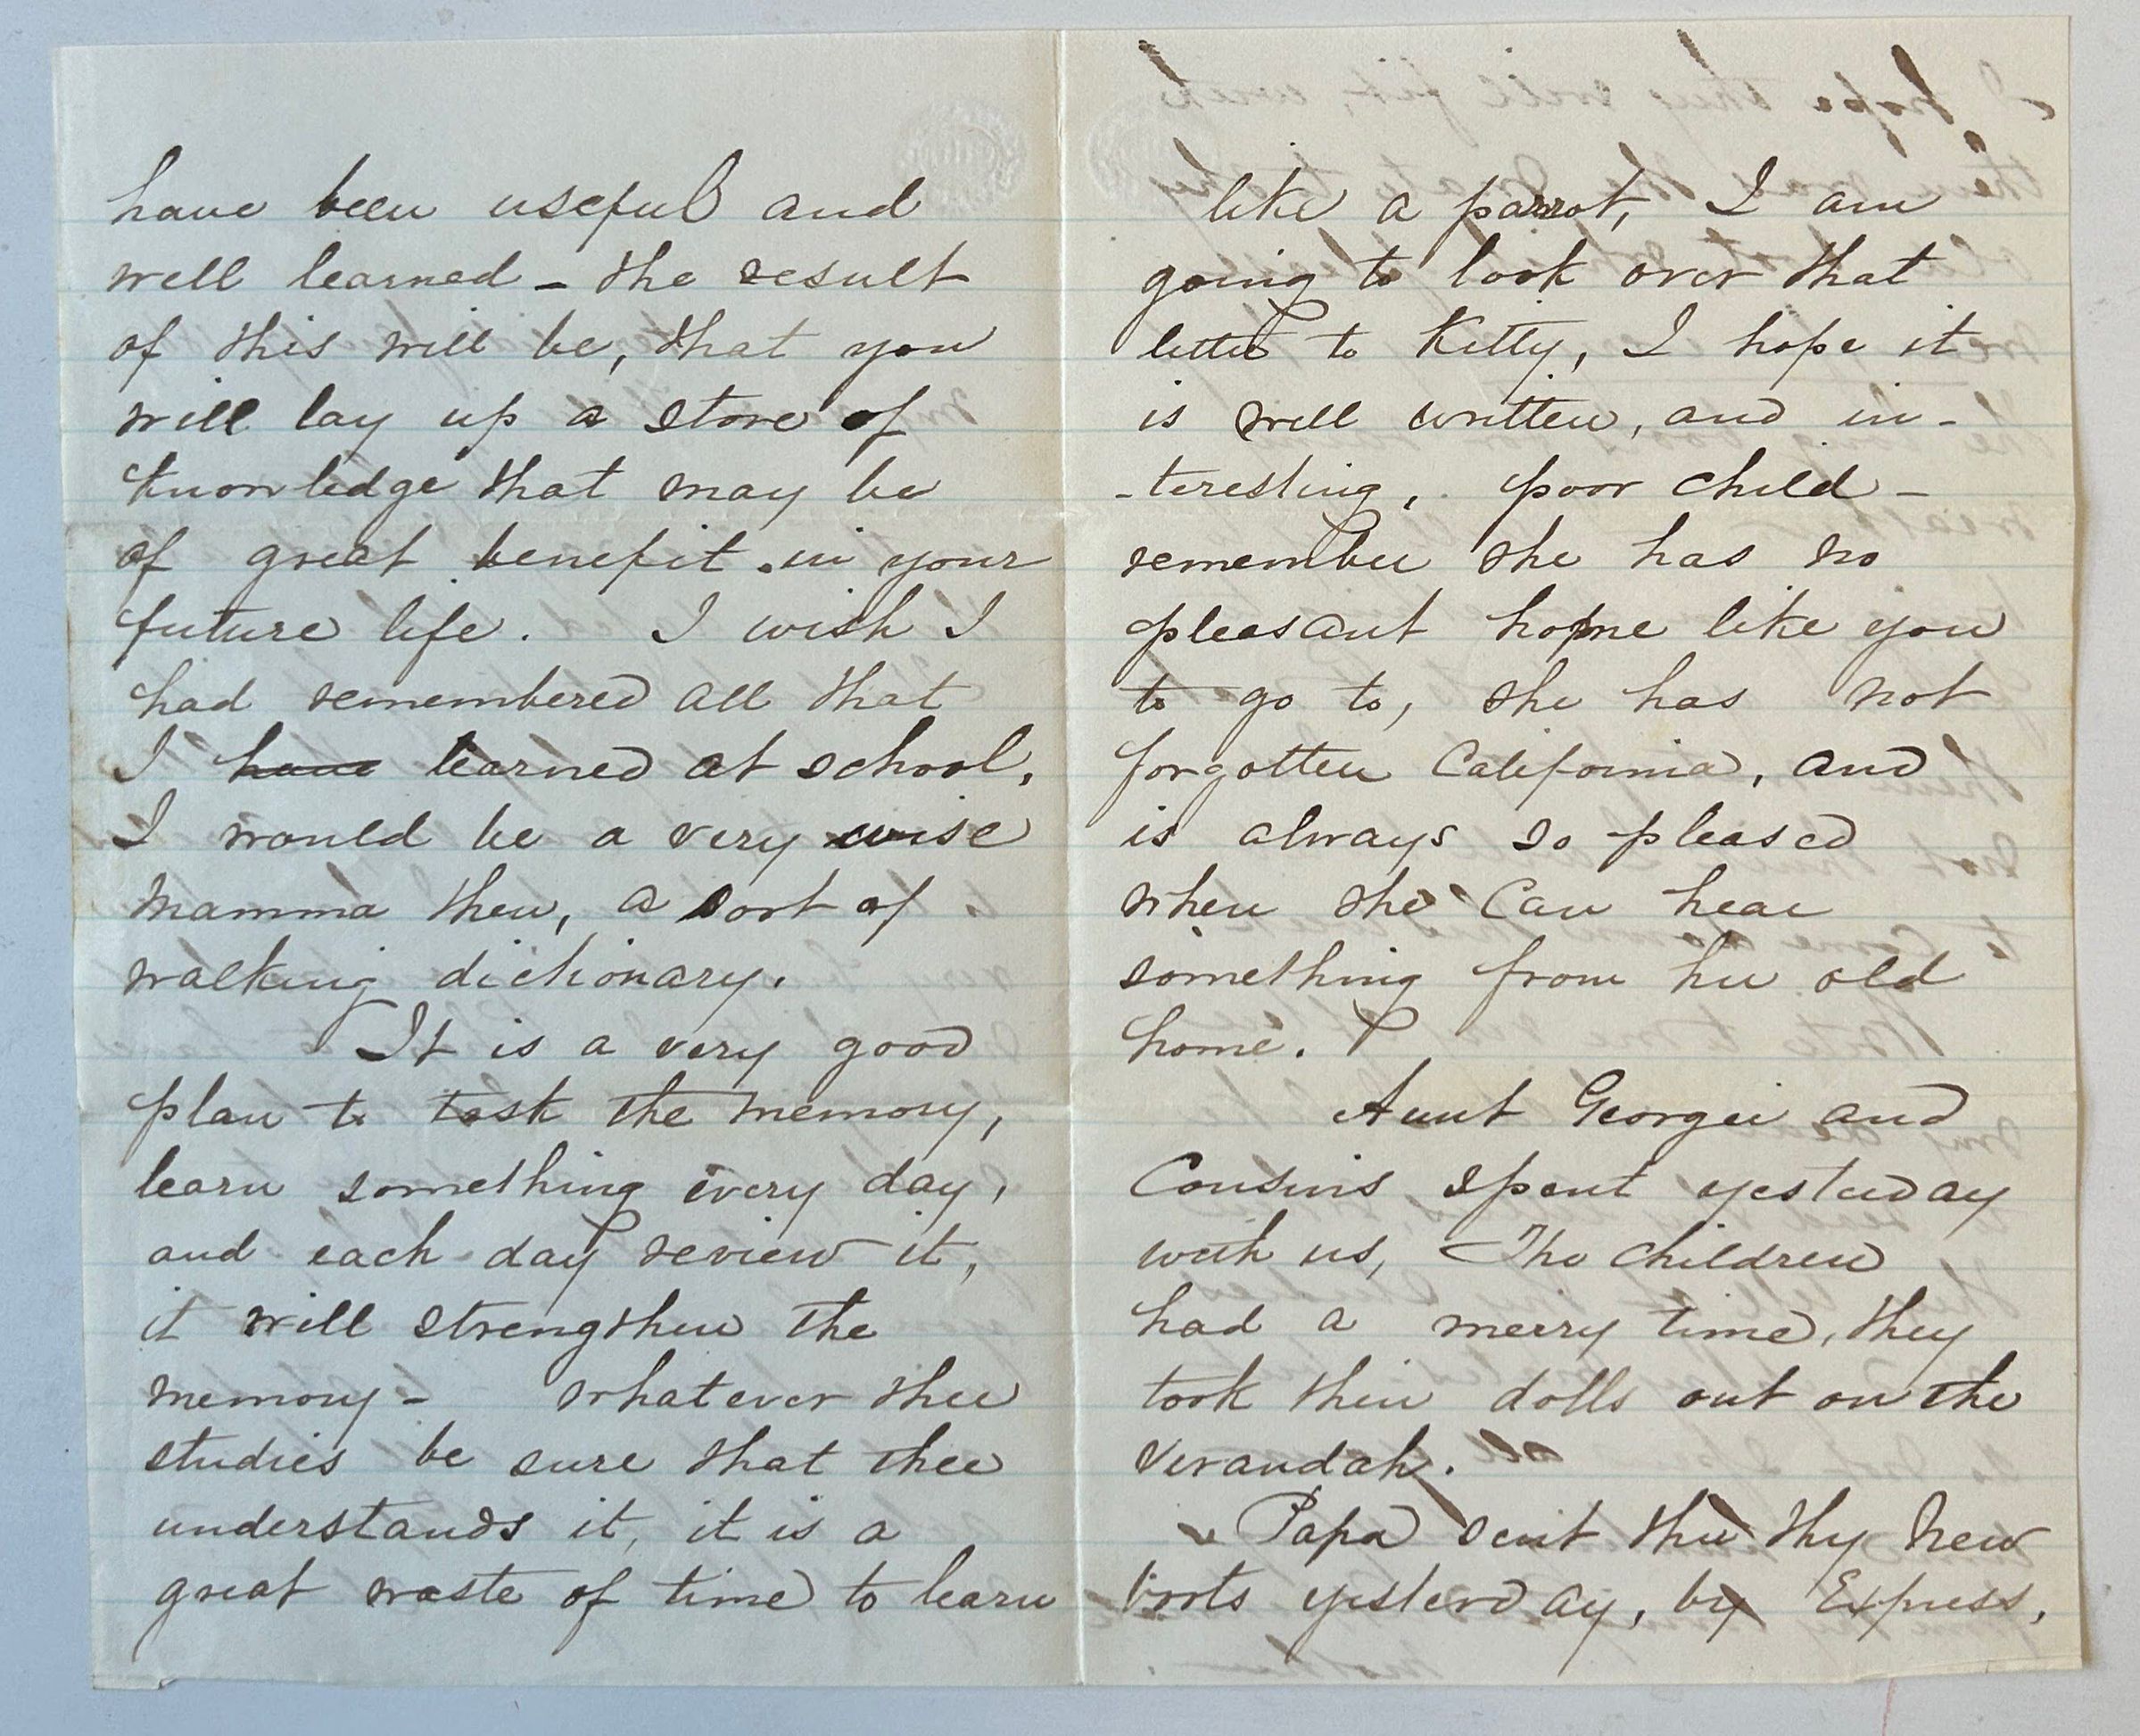 have been useful and
well learned – the result
of this will be, that you
will lay up a store of
knowledge that may be
of great benefit in your
future life. I wish I
had remembered all that
I have learned at school,
I would be a very wise
Mamma then, a sort of
walking dictionary.
It is a very good
plan to task the memory,
learn something every day,
and each day review it,
it will strengthen the
memory – whatever thee
studies be sure that thee
understands it, it is a
great waste of time to learn
like a parrot, I am
going to look over that
letter to Kitty, I hope it
is well written, and in-
-teresting, poor child –
remember she has no
pleasant home like you
to go to, she has not
forgotten California, and
is always so pleased
when she can hear
something from her old
home.
Aunt Georgei and
Cousins spent yesterday
with us, The children
had a merry time, they
took their dolls out on the
verandah.
Papa sent thee thy new
boots yesterday, by Express,